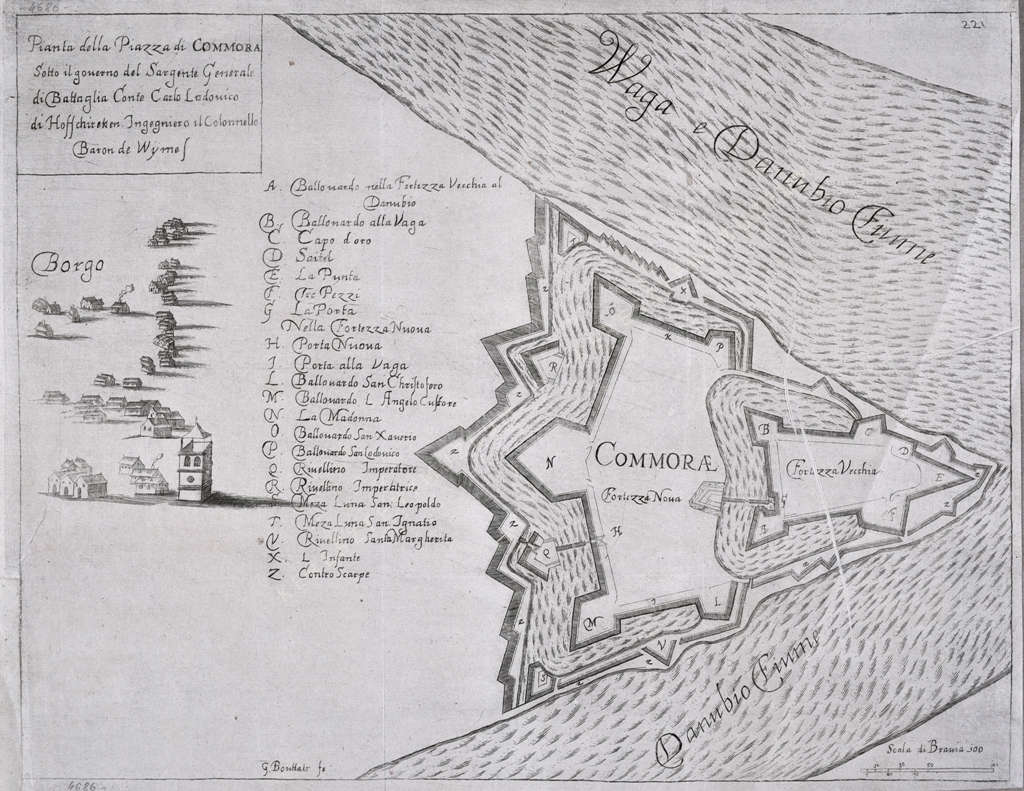 4686
221
Pianta della Piazza di COMMORA
Sotto il governo del Sargente Generale
di Battaglia Conte Carlo Lodovico
di Hoffchireken. Ingegniero il Colonnello
Baron de Wymes
Waga e Danubio Fiume
Borgo
A. Ballouardo nella Fortezza Vecchia al
Danubio
B. Ballouardo alla Vaga
C. Capo d'oro
D Saitel
E La Punta
F. Tre Pezzi
G La Porta
Nella Fortezza Nuoua
H. Porta Nuoua
I. Porta alla Vaga
L. Ballouardo San Christoforo
M. Ballouardo L Angelo Custore
N. La Madonna
O. Ballouardo San Xauerio
P. Ballouardo San Lodouico
Q. Riuellino Imperatore
R. Riuellino Imperatrice
S Meza Luna San Leopoldo
T. Meza Luna San Ignatio
V. Riuellino Santa Margherita
X. L Infante
Z. Contro Scarpe
COMMORÆ
Fortezza Noua
Fortezza Vecchia
T
X
O
x
P
R
Z
N
H
Q
M
I
L
V
S
B
C
D
E
F
G
A
Danubio Fiume
G Bouttats fe
Scala di Brauia 100
4686